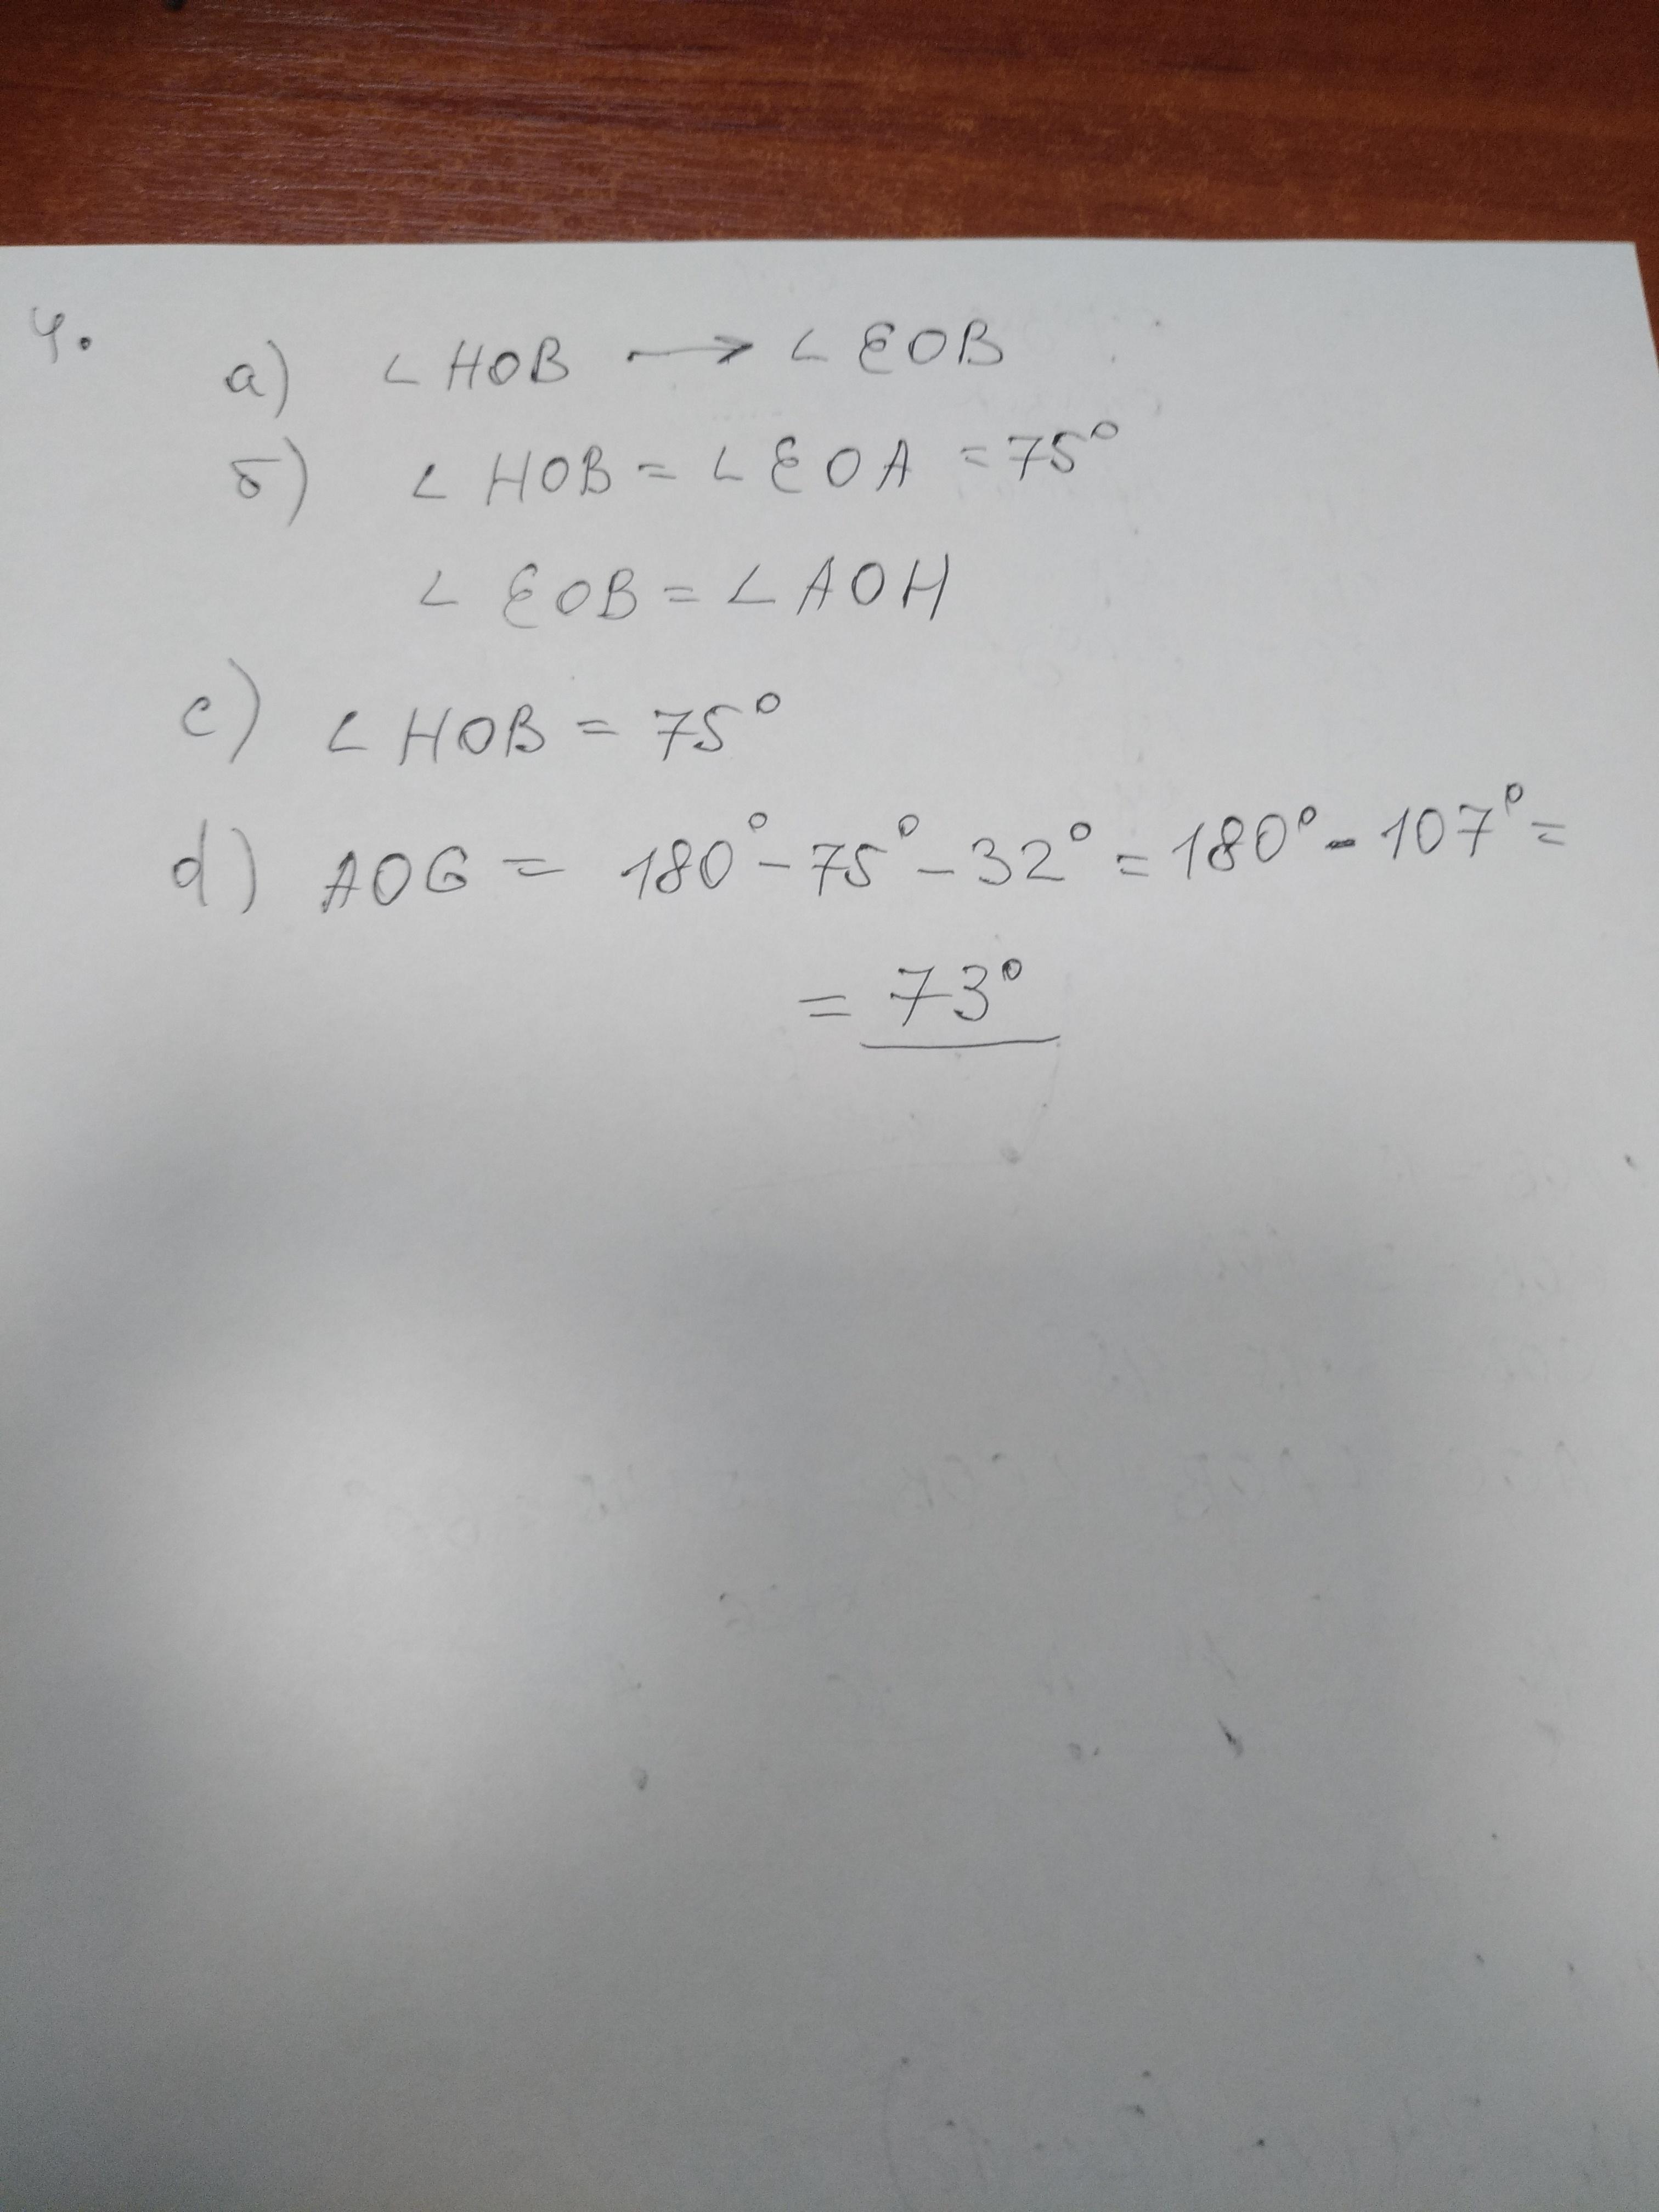 4.
a) ∠ HOB → ∠ EOB
б) ∠ HOB = ∠ EOA = 75°
∠ EOB = ∠ AOH
c) ∠ HOB = 75°
d) AOG = 180° - 75° - 32° = 180° - 107° =
= 73°